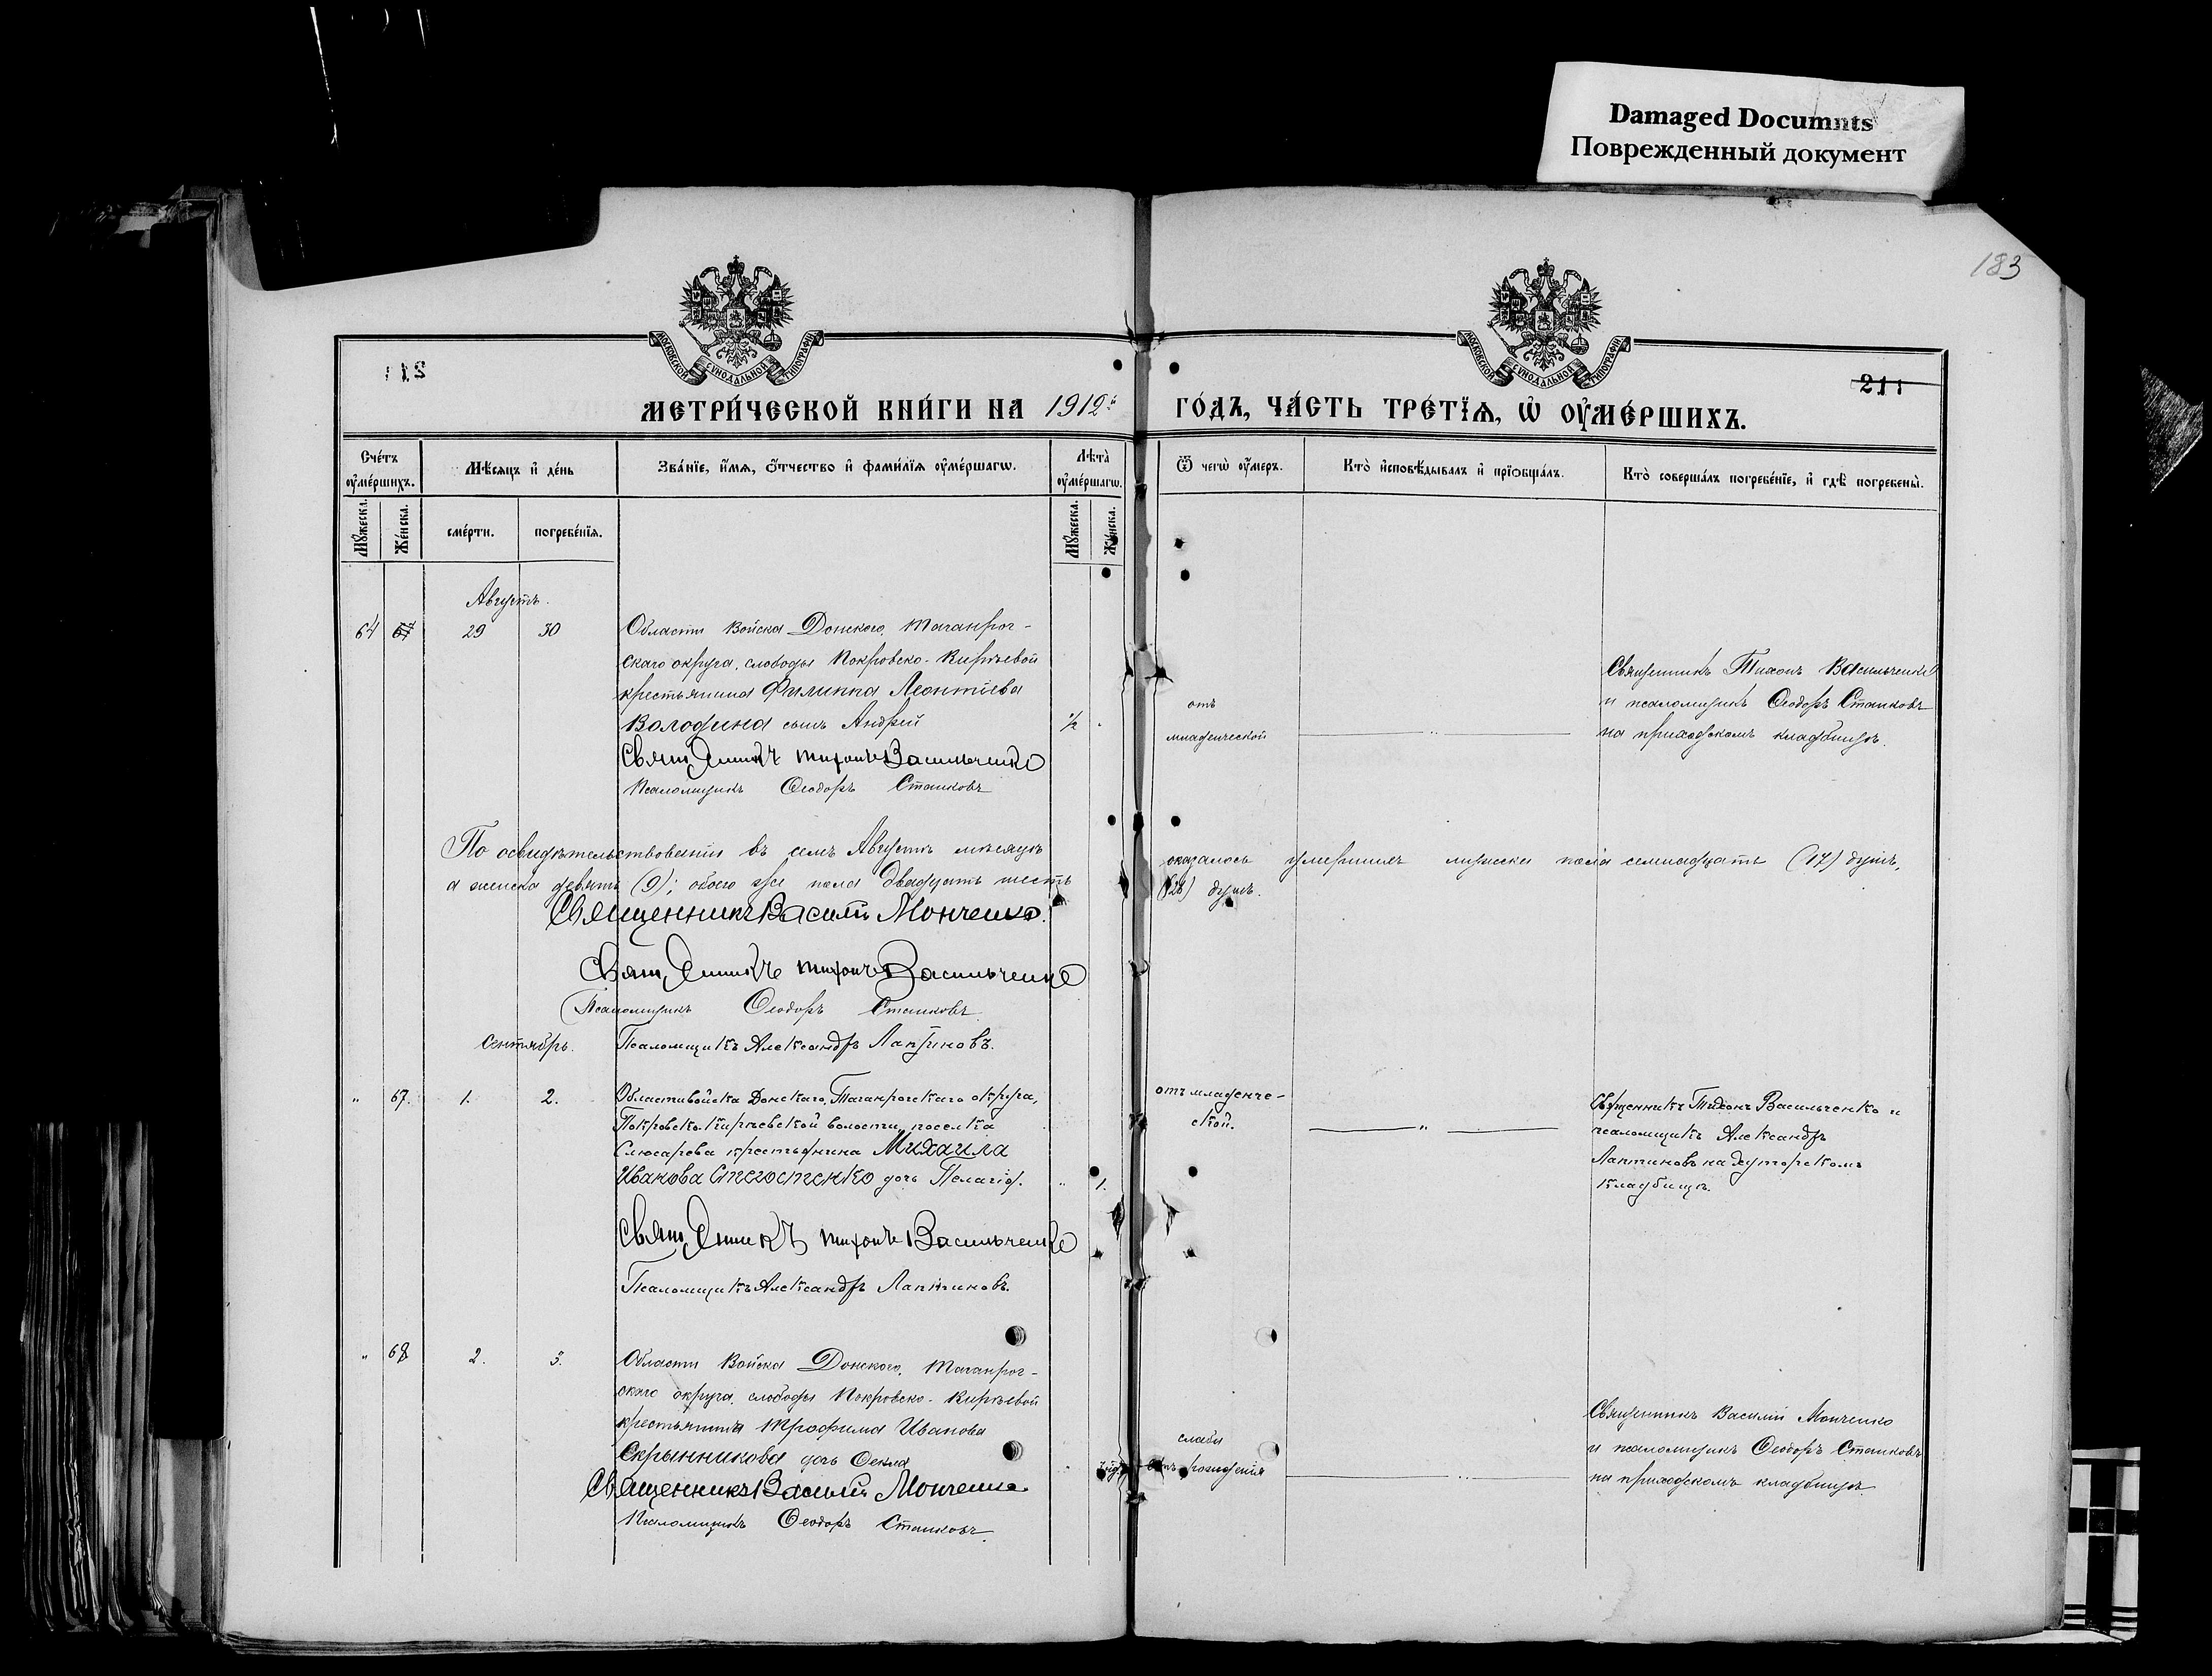 Damaged Documnts
Поврежденный документ
183
211
211
МОСКОВСКОЙ СѴНОДАЛЬНОЙ ТИПОГРАФІИ
МОСКОВСКОЙ СѴНОДАЛЬНОЙ ТИПОГРАФІИ
МЕТРИ́ЧЕСКОЙ КНИ́ГИ НА 1912й ГО́ДЪ, ЧА́СТЬ ТРЕ́ТЇѦ, Ѡ҆ ОУ҆МЕ́РШИХЪ.
Сче́тъ оу҆ме́ршихъ.
Мѣ́сѧцъ и҆ де́нь
Зва́нїе, и҆́мѧ, ѻ҆́тчество и҆ фами́лїѧ оу҆ме́ршагѡ.
Лѣ́та оу҆ме́ршагѡ.
Ѿ чегѡ̀ оу҆́меръ.
Кто̀ и҆сповѣ́дывалъ и҆ прїѡбща́лъ.
Кто̀ соверша́лъ погребе́нїе, и҆ гдѣ̀ погребены̀.
Мꙋ́жеска.
Же́нска.
сме́рти.
погребе́нїѧ.
Мꙋ́жеска.
Же́нска.
Августъ.
64 29 30 Области Войска Донского, Таганрог-
скаго округа, слободы Покровско-Кирѣевой
крестьянина Филиппа Леонтіева
Володина сынъ Андрей ½
Священникъ Тихонъ Васильченко
Псаломщикъ Ѳеодоръ Станковъ
отъ
младенческой
Священникъ Тихонъ Васильченко
и псаломщикъ Ѳеодоръ Станковъ
на приходскомъ кладбищѣ.
По освидѣтельствованіи въ семъ Августѣ мѣсяцѣ оказалось умершихъ мужеска пола семнадцать (17) душъ,
а женска девять (9); обоего же пола двадцать шесть (26) душъ.
Священникъ Василій Монченко.
Священникъ Тихонъ Васильченко
Псаломщикъ Ѳеодоръ Станковъ
Сентябрь.
Псаломщикъ Александръ Лаптиновъ.
" 67. 1. 2. Области войска Донскаго, Таганрогскаго округа,
Покровско-Кирѣевской волости поселка
Слюсарева крестьянина Михаила
Иванова Стегостенко дочь Пелагія. " 1.
Священникъ Тихонъ Васильченко
Псаломщикъ Александръ Лаптиновъ.
отъ младенче-
ской.
Священникъ Тихонъ Васильченко и
псаломщикъ Александръ
Лаптиновъ на хуторскомъ
кладбищѣ.
" 68 2. 3. Области Войска Донского, Таганрог-
скаго округа, слободы Покровско-Кирѣевой
крестьянина Трофима Иванова
Скрынникова дочь Ѳекла
Священникъ Василій Монченко
Псаломщикъ Ѳеодоръ Станковъ
слаба
отъ рожденія
Священникъ Василій Монченко
и псаломщикъ Ѳеодоръ Станковъ
на приходскомъ кладбищѣ